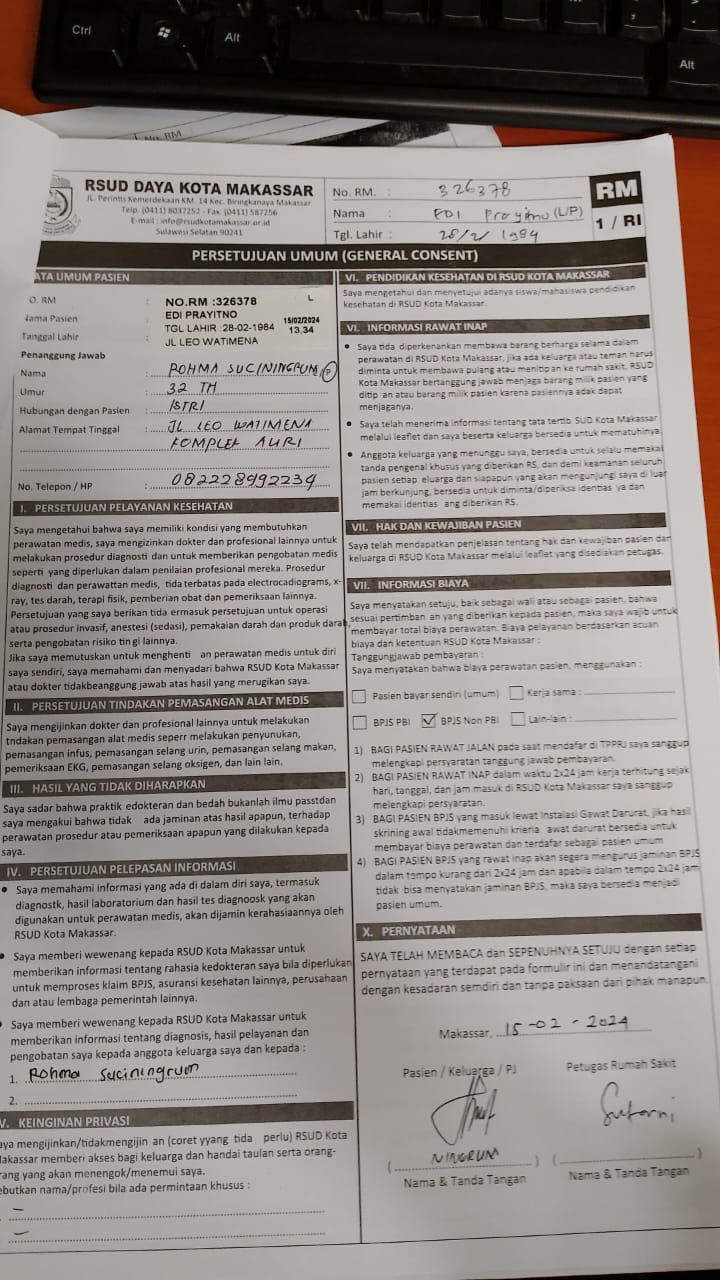 Ctrl
Alt
Alt
No. RM
RSUD DAYA KOTA MAKASSAR
JL. Perintis Kemerdekaan KM. 14 Kec. Biringkanaya Makassar
Telp. (0411) 8037252 - Fax. (0411) 587256
E-mail : info@rsudkotamakassar.or.id
Sulawesi Selatan 90241
No. RM. : 326378
Nama : EDI Prayitno (L/P)
Tgl. Lahir : 28/2/1984
RM
1 / RI
PERSETUJUAN UMUM (GENERAL CONSENT)
ATA UMUM PASIEN
O. RM :
Nama Pasien :
Tanggal Lahir :
NO.RM :326378 L
EDI PRAYITNO 15/02/2024
TGL LAHIR :28-02-1984 13.34
JL LEO WATIMENA
Penanggung Jawab
Nama : ROHMA SUCININGRUM (P)
Umur : 32 TH
Hubungan dengan Pasien : ISTRI
Alamat Tempat Tinggal : JL LEO WATIMENA
KOMPLEK AURI
No. Telepon / HP : 082228992234
I. PERSETUJUAN PELAYANAN KESEHATAN
Saya mengetahui bahwa saya memiliki kondisi yang membutuhkan
perawatan medis, saya mengizinkan dokter dan profesional lainnya untuk
melakukan prosedur diagnosti dan untuk memberikan pengobatan medis
seperti yang diperlukan dalam penilaian profesional mereka. Prosedur
diagnosti dan perawattan medis, tida terbatas pada electrocadiograms, x-
ray, tes darah, terapi fisik, pemberian obat dan pemeriksaan lainnya.
Persetujuan yang saya berikan tida ermasuk persetujuan untuk operasi
atau prosedur invasif, anestesi (sedasi), pemakaian darah dan produk darah,
serta pengobatan risiko tingi lainnya.
Jika saya memutuskan untuk menghenti an perawatan medis untuk diri
saya sendiri, saya memahami dan menyadari bahwa RSUD Kota Makassar
atau dokter tidakbeanggung jawab atas hasil yang merugikan saya.
II. PERSETUJUAN TINDAKAN PEMASANGAN ALAT MEDIS
Saya mengijinkan dokter dan profesional lainnya untuk melakukan
tndakan pemasangan alat medis seperr melakukan penyunukan,
pemasangan infus, pemasangan selang urin, pemasangan selang makan,
pemeriksaan EKG, pemasangan selang oksigen, dan lain lain.
III. HASIL YANG TIDAK DIHARAPKAN
Saya sadar bahwa praktik edokteran dan bedah bukanlah ilmu passtdan
saya mengakui bahwa tidak ada jaminan atas hasil apapun, terhadap
perawatan prosedur atau pemeriksaan apapun yang dilakukan kepada
saya.
IV. PERSETUJUAN PELEPASAN INFORMASI
• Saya memahami informasi yang ada di dalam diri saya, termasuk
diagnostk, hasil laboratorium dan hasil tes diagnoosk yang akan
digunakan untuk perawatan medis, akan dijamin kerahasiaannya oleh
RSUD Kota Makassar.
• Saya memberi wewenang kepada RSUD Kota Makassar untuk
memberikan informasi tentang rahasia kedokteran saya bila diperlukan
untuk memproses klaim BPJS, asuransi kesehatan lainnya, perusahaan
dan atau lembaga pemerintah lainnya.
Saya memberi wewenang kepada RSUD Kota Makassar untuk
memberikan informasi tentang diagnosis, hasil pelayanan dan
pengobatan saya kepada anggota keluarga saya dan kepada :
1. Rohma Suciningrum
2.
V. KEINGINAN PRIVASI
aya mengijinkan/tidakmengijin an (coret yyang tida perlu) RSUD Kota
Makassar memberi akses bagi keluarga dan handai taulan serta orang-
rang yang akan menengok/menemui saya.
ebutkan nama/profesi bila ada permintaan khusus :
–
–
VI. PENDIDIKAN KESEHATAN DI RSUD KOTA MAKASSAR
Saya mengetahui dan menyetujui adanya siswa/mahasiswa pendidikan
kesehatan di RSUD Kota Makassar.
VI. INFORMASI RAWAT INAP
• Saya tida diperkenankan membawa barang berharga selama dalam
perawatan di RSUD Kota Makassar, jika ada keluarga atau teman harus
diminta untuk membawa pulang atau menitip an ke rumah sakit. RSUD
Kota Makassar bertanggung jawab menjaga barang milik pasien yang
ditip an atau barang milik pasien karena pasiennya adak dapat
menjaganya.
• Saya telah menerima informasi tentang tata tertib SUD Kota Makassar
melalui leaflet dan saya beserta keluarga bersedia untuk mematuhinya.
• Anggota keluarga yang menunggu saya, bersedia untuk selalu memakai
tanda pengenal khusus yang diberikan RS, dan demi keamanan seluruh
pasien setiap eluarga dan siapapun yang akan mengunjungi saya di luar
jam berkunjung, bersedia untuk diminta/diperiksa identias ya dan
memakai identias ang diberikan RS.
VII. HAK DAN KEWAJIBAN PASIEN
Saya telah mendapatkan penjelasan tentang hak dan kewajiban pasien dan
keluarga di RSUD Kota Makassar melalui leaflet yang disediakan petugas.
VII. INFORMASI BIAYA
Saya menyatakan setuju, baik sebagai wali atau sebagai pasien, bahwa
sesuai pertimban an yang diberikan kepada pasien, maka saya wajib untuk
membayar total biaya perawatan. Biaya pelayanan berdasarkan acuan
biaya dan ketentuan RSUD Kota Makassar :
Tanggungjawab pembayaran :
Saya menyatakan bahwa biaya perawatan pasien, menggunakan :
Pasien bayar sendiri (umum) Kerja sama :
BPJS PBI ✓ BPJS Non PBI Lain-lain :
1) BAGI PASIEN RAWAT JALAN pada saat mendafar di TPPRJ saya sanggup
melengkapi persyaratan tanggung jawab pembayaran.
2) BAGI PASIEN RAWAT INAP dalam waktu 2x24 jam kerja terhitung sejak
hari, tanggal, dan jam masuk di RSUD Kota Makassar saya sanggup
melengkapi persyaratan.
3) BAGI PASIEN BPJS yang masuk lewat Instalasi Gawat Darurat, jika hasil
skrining awal tidakmemenuhi krieria awat darurat bersedia untuk
membayar biaya perawatan dan terdafar sebagai pasien umum
4) BAGI PASIEN BPJS yang rawat inap akan segera mengurus jaminan BPJS
dalam tempo kurang dari 2x24 jam dan apabila dalam tempo 2x24 jam
tidak bisa menyatakan jaminan BPJS, maka saya bersedia menjadi
pasien umum.
X. PERNYATAAN
SAYA TELAH MEMBACA dan SEPENUHNYA SETUJU dengan setiap
pernyataan yang terdapat pada formulir ini dan menandatangani
dengan kesadaran semdiri dan tanpa paksaan dari pihak manapun.
Makassar, 15-02-2024
Pasien / Keluarga / PJ Petugas Rumah Sakit
Sutarni
( NINGRUM ) ( )
Nama & Tanda Tangan Nama & Tanda Tangan